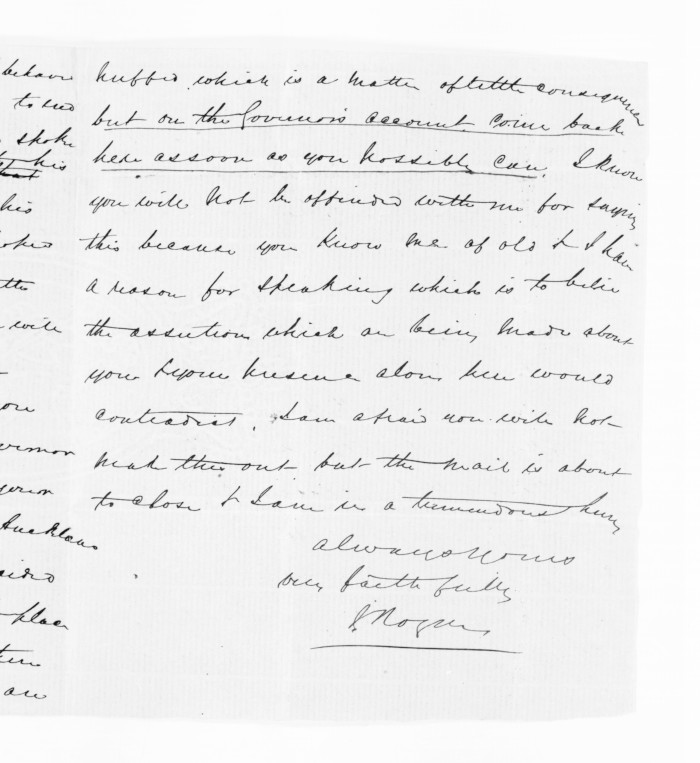 behave
to see
spoke
his
that
his
the
with
Auckland
place
are
which is a matter of little consequence
but on the Governors account come back
here as soon as you possibly can. I know
you will not be offended with me for saying
this because you know me of old & I have
a reason for speaking which is to belie
the assertions which are being made about
you & your presence alone here would
contradict. I am afraid you will not
make this out but the mail is about
to close & I am in a tremendous hurry
always yours
very faithfully